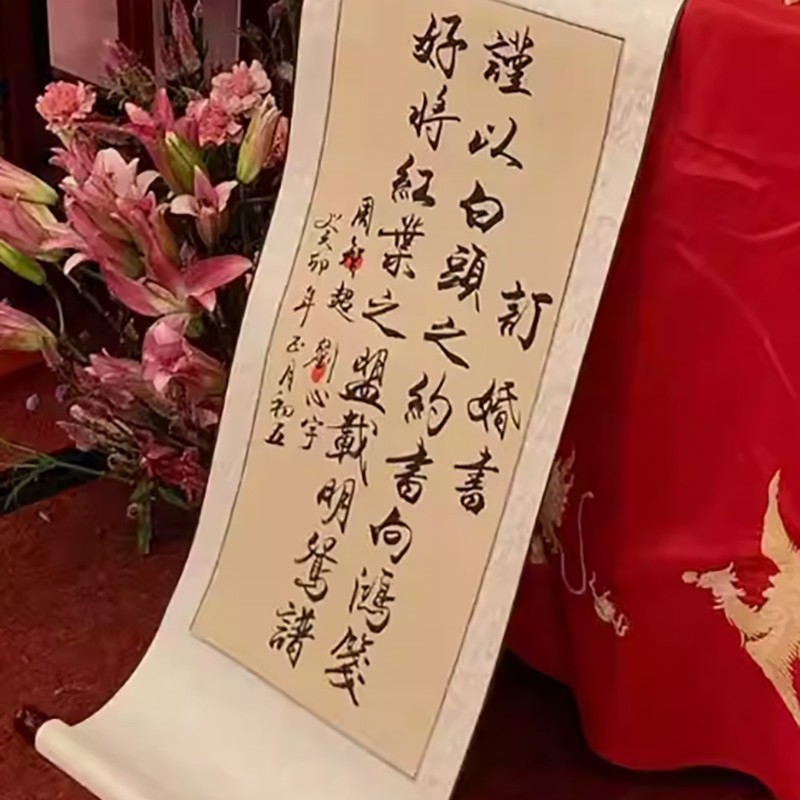 訂婚書
謹以白頭之約書向鴻箋
好將紅葉之盟載明鴛譜
周 超 劉心宇
癸卯年正月初五